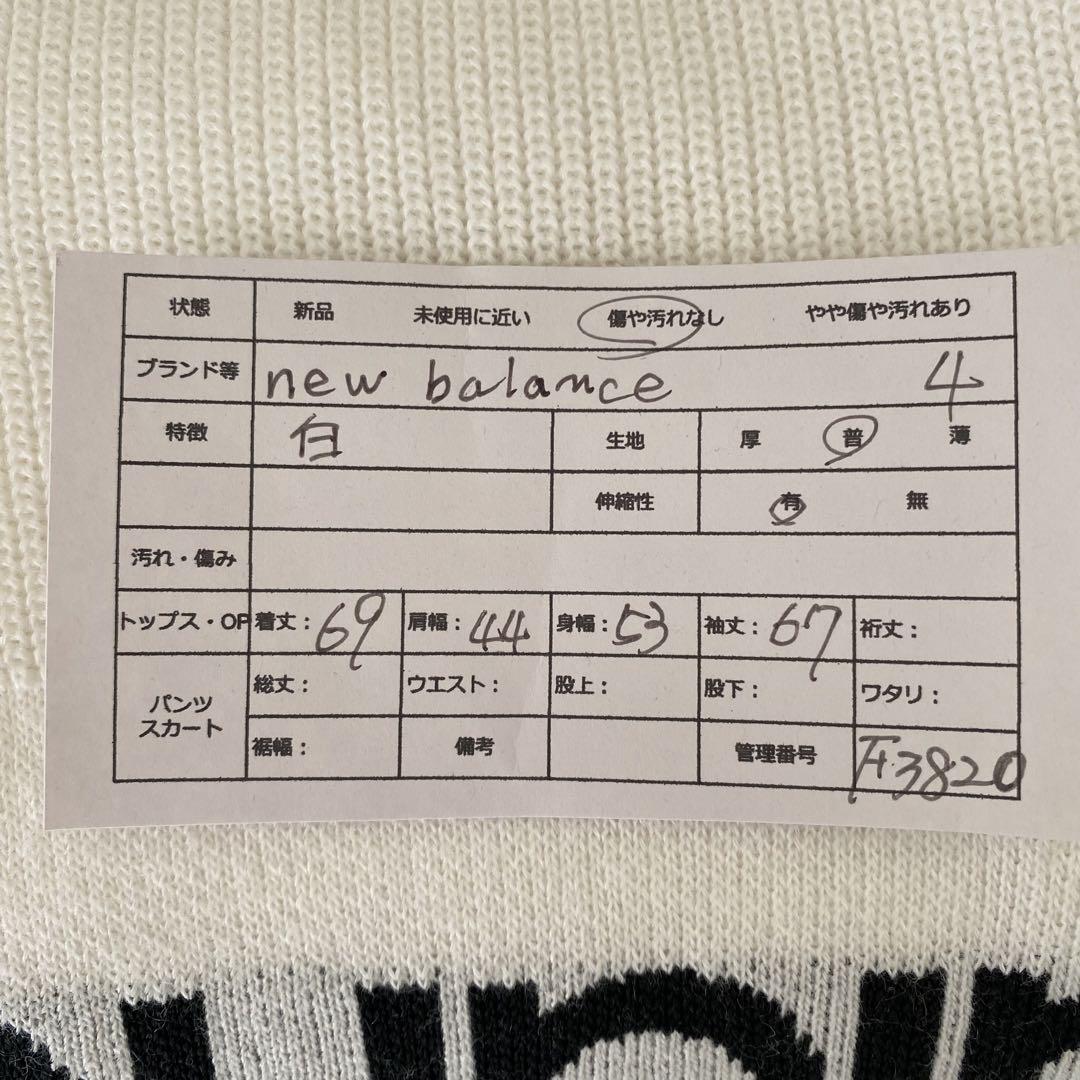 状態 新品 未使用に近い 傷や汚れなし やや傷や汚れあり
ブランド等 new balance 4
特徴 白 生地 厚 普 薄
伸縮性 有 無
汚れ・傷み
トップス・OP 着丈：69 肩幅：44 身幅：53 袖丈：67 裄丈：
パンツ スカート 総丈： ウエスト： 股上： 股下： ワタリ：
裾幅： 備考 管理番号 3820